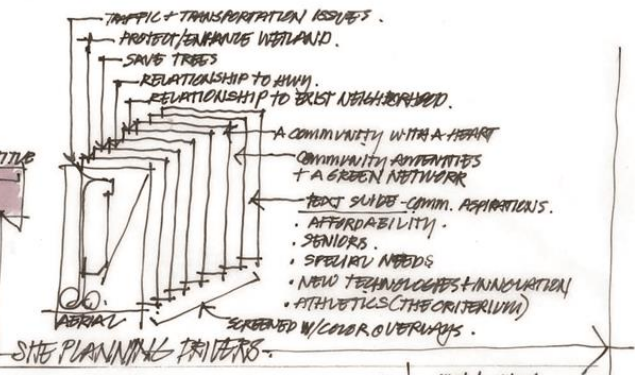 TRAFFIC + TRANSPORTATION ISSUES.
PROTECT/ENHANCE WETLAND.
SAVE TREES
RELATIONSHIP TO HWY.
RELATIONSHIP TO EXIST NEIGHBORHOOD.
A COMMUNITY WITH A HEART
COMMUNITY AMENITIES
+ A GREEN NETWORK
TEXT SLIDE - COMM. ASPIRATIONS.
· AFFORDABILITY.
· SENIORS.
· SPECIAL NEEDS
· NEW TECHNOLOGIES + INNOVATION
· ATHLETICS (THE CRITERIUM)
SCREENED W/COLOR OVERLAYS.
AERIAL
SITE PLANNING DRIVERS.